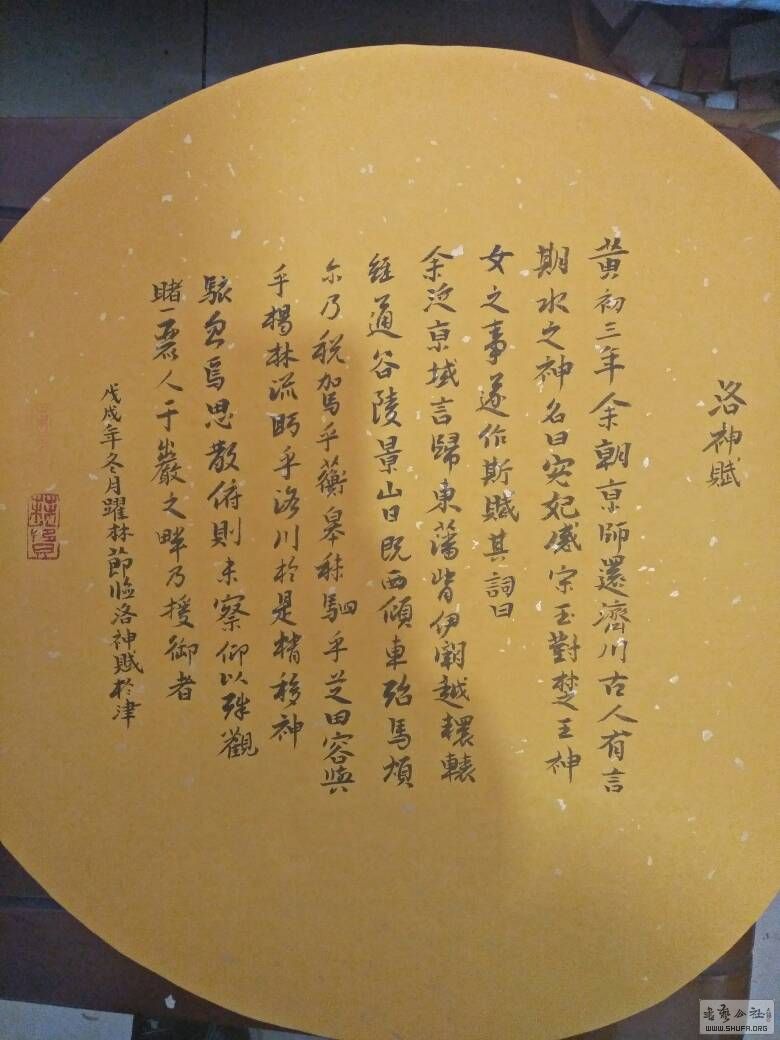 洛神賦
黄初三年余朝京師還濟川古人有言
期水之神名曰宓妃感宋玉對楚王神
女之事遂作斯賦其詞曰
余從京域言歸東藩背伊闕越轘轅
經通谷陵景山日既西傾車殆馬煩
尓乃税駕乎蘅皋秣駟乎芝田容與
乎楊林流眄乎洛川於是精移神
駭忽焉思散俯則未察仰以殊觀
睹一麗人于巖之畔乃援御者
戊戌年冬月躍林節临洛神賦於津
WWW.SHUFA.ORG